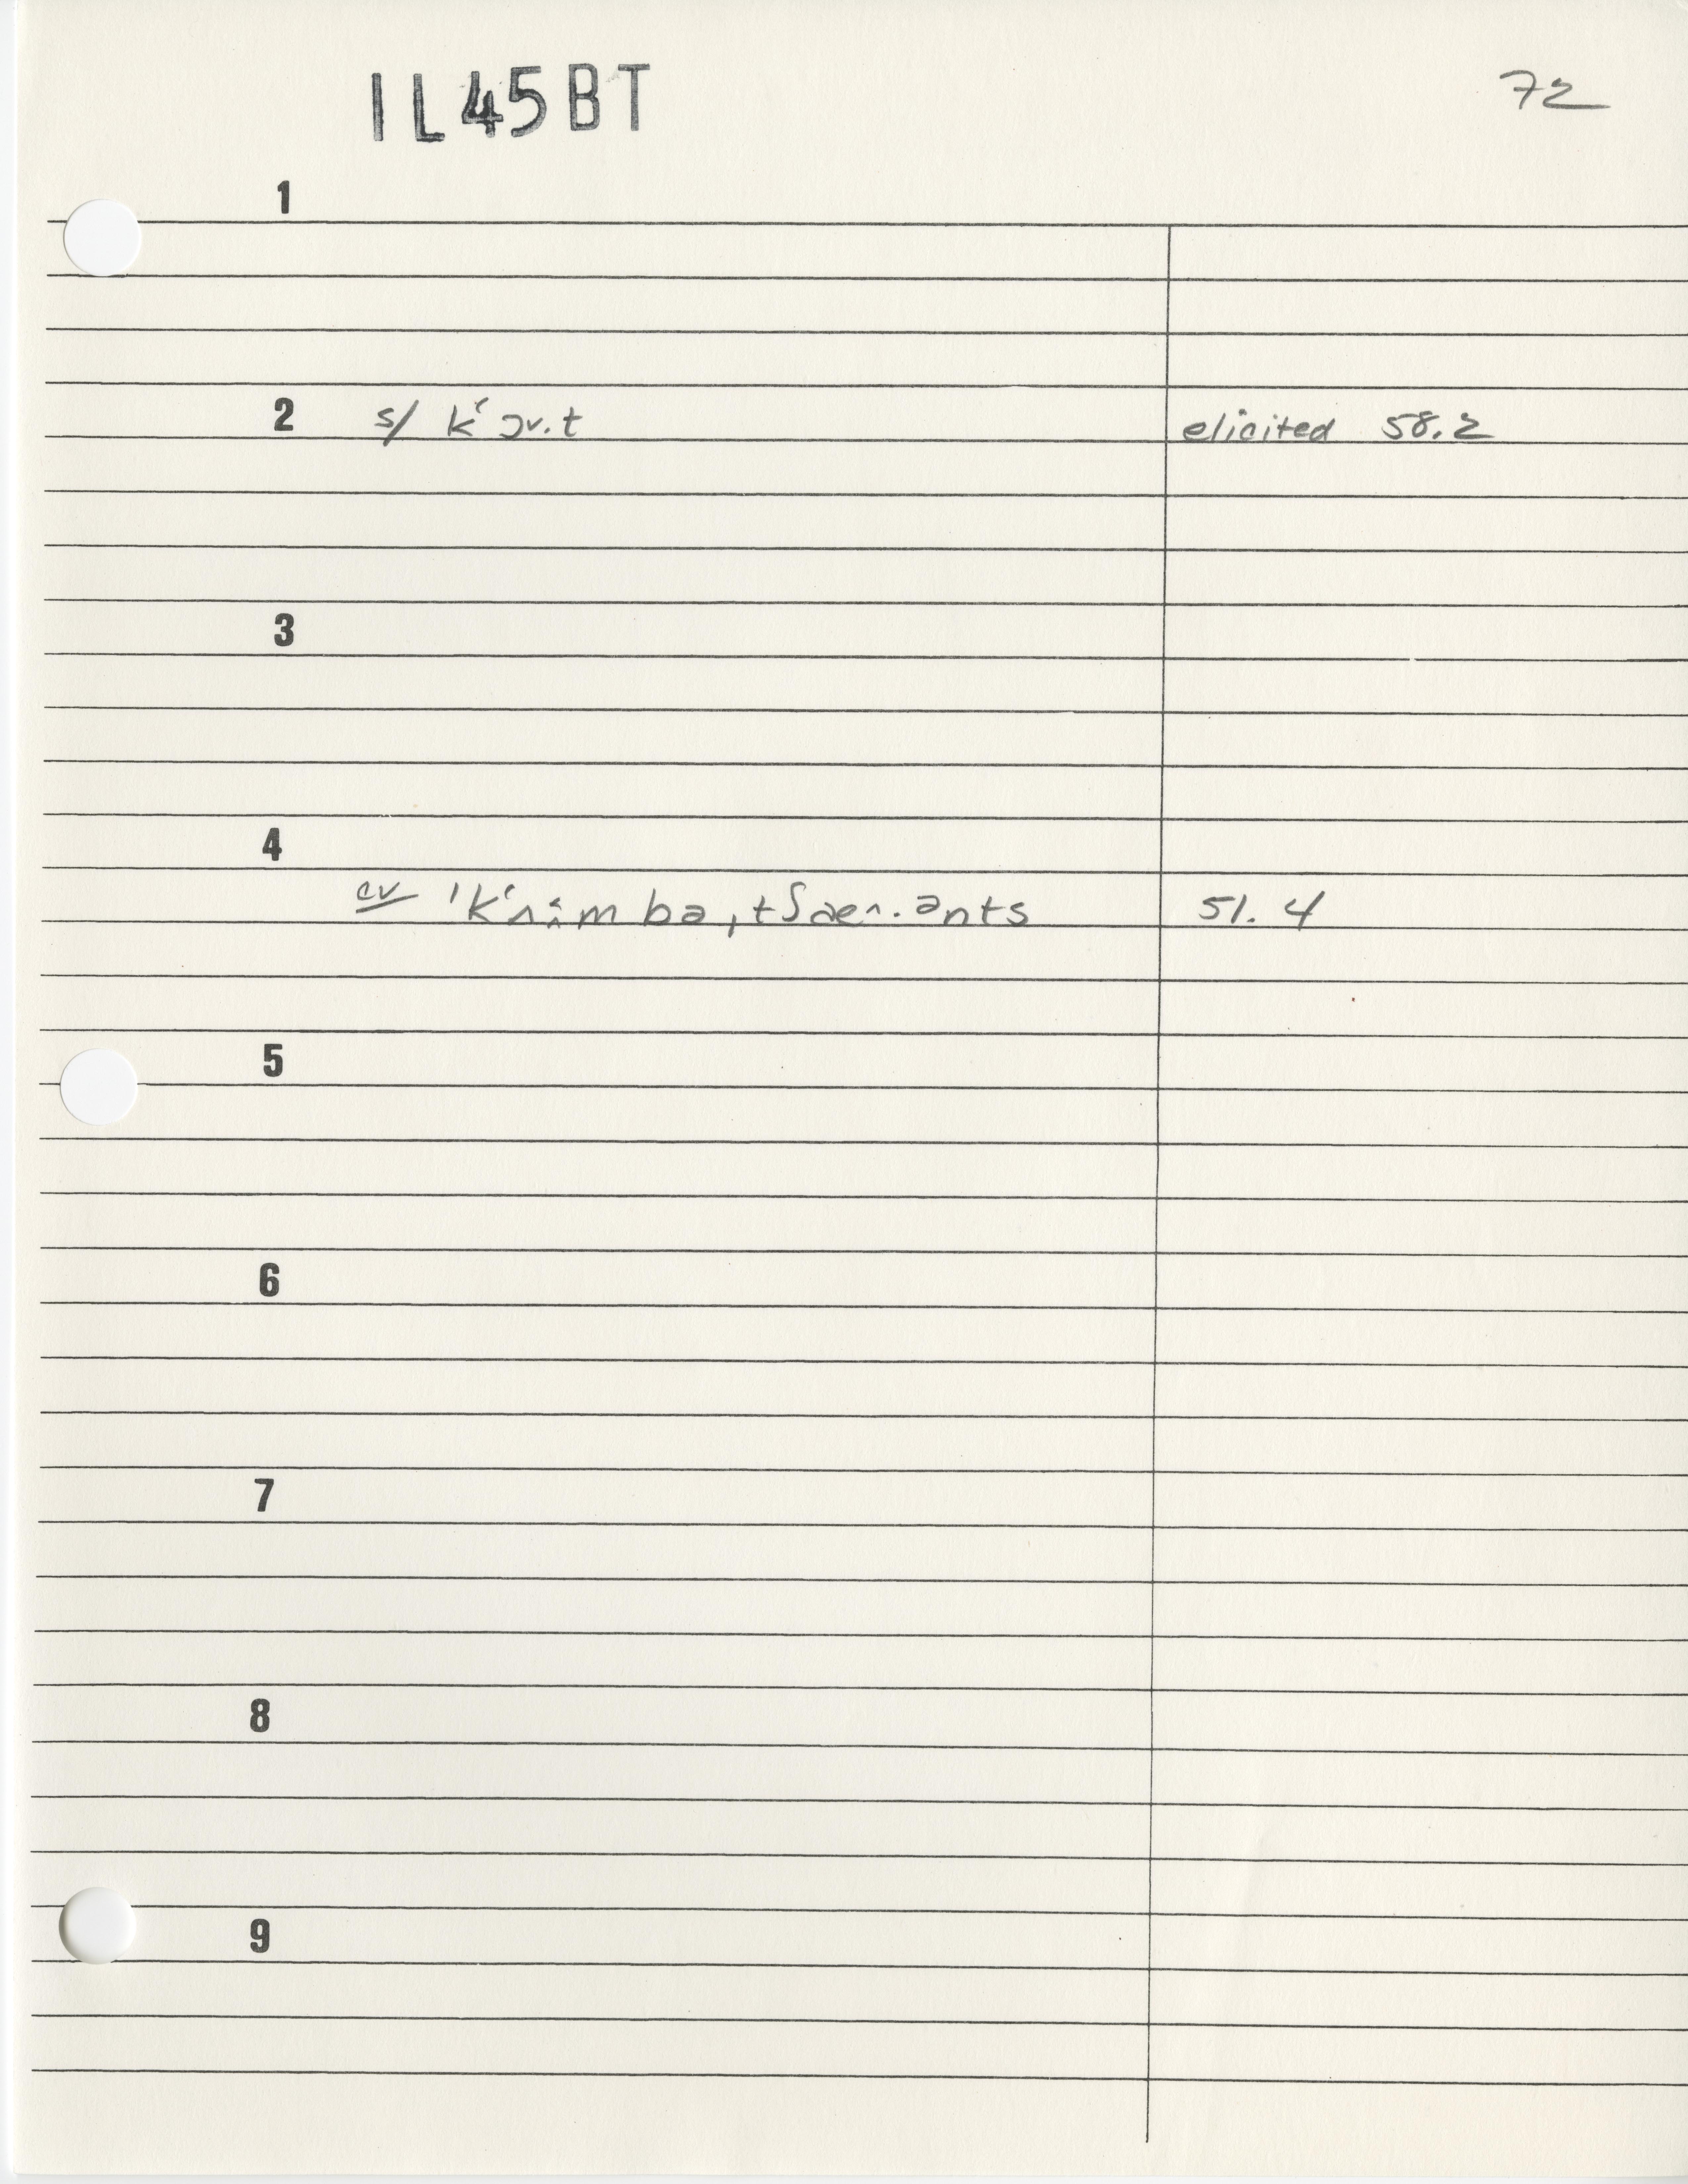 IL45BT
72
1
2 s/ kʻɔv.t elicited 58.2
3
4
cv ˈkʻɹɨ̂m bə ˌtʃaeɹ^.ənts 51.4
5
6
7
8
9